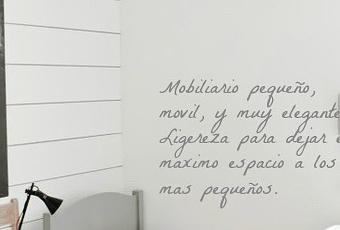 Mobiliario pequeño,
movil, y muy elegante
Ligereza para dejar
maximo espacio a los
mas pequeños.